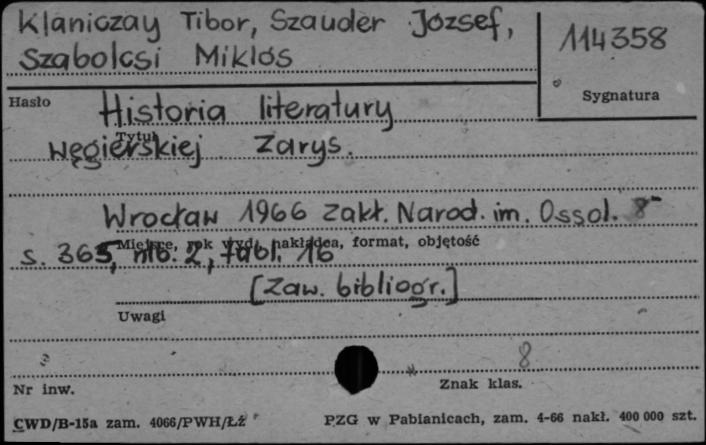 Klaniczay Tibor, Szauder József,
Szabolcsi Miklós
114358
Hasło
Sygnatura
Historia literatury
Tytuł
Węgierskiej. Zarys.
Wrocław 1966 Zakł. Narod. im. Ossol. 8°
Miejsce, rok wyd., nakładca, format, objętość
s. 365, nlb. 2, tabl. 16
[Zaw. bibliogr.]
Uwagi
8
Nr inw.
Znak klas.
CWD/B-15a zam. 4066/PWH/Łź
PZG w Pabianicach, zam. 4-66 nakł. 400 000 szt.